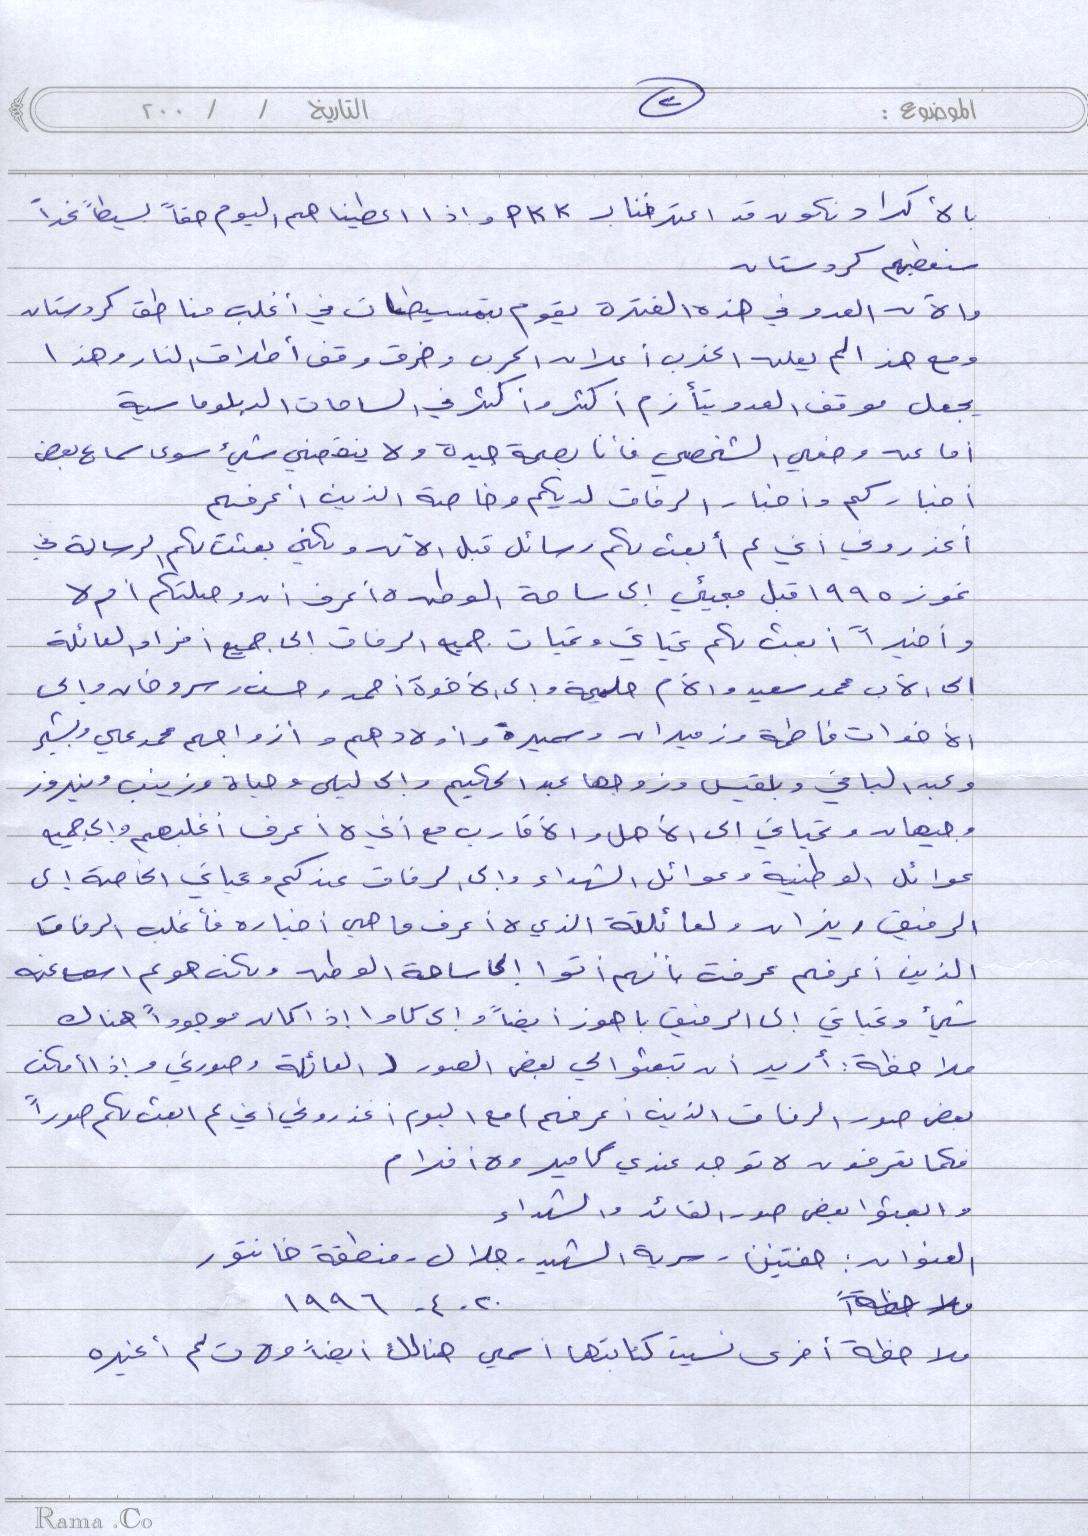 الموضوع : ٣ التاريخ / / ٢٠٠
بالأكراد نكون قد اعترفنا بـ PKK واذا اعطيناهم اليوم حقاً بسيطاً غداً
سنعطيهم كردستان
والآن العدو في هذه الفترة يقوم بتمشيطات في أغلب مناطق كردستان
ومع هذا لم يعلن الحزب أعلان الحرب وخرق وقف أطلاق النار وهذا
يجعل موقف العدو يتأزم أكثر وأكثر في الساحات الدبلوماسية
أما عن وضعي الشخصي فأنا بصحة جيدة ولا ينقصني شيء سوى سماع بعض
أخباركم وأخبار الرفاق لديكم وخاصة الذين أعرفهم
أعذروني أني لم أبعث لكم رسائل قبل الآن ولكني بعثت لكم الرسالة في
تموز ١٩٩٥ قبل مجيئي إلى ساحة الوطن لا أعرف أن وصلتكم أم لا
وأخيراً أبعث لكم تحياتي وتحيات جميع الرفاق إلى جميع أفراد العائلة
إلى الأب محمد سعيد والأم حليمة وإلى الأخوة أحمد وحسن وسروخان وإلى
الأخوات فاطمة وزميران وسميرة وأولادهم وأزواجهم محمد علي وبشير
وعبد الباقي وبلقيس وزوجها عبد الحكيم وإلى ليلى وحياة وزينب ونيروز
وجيهان وتحياتي إلى الأهل والأقارب مع أني لا أعرف أغلبهم وإلى جميع
عوائل الوطنية وعوائل الشهداء وإلى الرفاق عندكم وتحياتي الخاصة إلى
الرفيق ريزان ولعائلته الذي لا أعرف ما هي أخباره فأغلب الرفاق
الذين أعرفهم عرفت بأنهم أتوا إلى ساحة الوطن ولكن هو لم اسمع عنه
شيء وتحياتي إلى الرفيق باهوز أيضاً وإلى كاوا إذا كان موجوداً هناك
ملاحظة : أريد أن تبعثوا لي بعض الصور ( العائلة وصورتي وإذا أمكن
بعض صور الرفاق الذين أعرفهم ) مع اليوم أعذروني أني لم ابعث لكم صوراً
فكما تعرفون لا توجد عندي كاميرا ولا أفلام
وابعثوا بعض صور القائد والشهداء
العنوان : حفتنين - سرية الشهيد - جلال - منطقة خانتور
ملاحظة ٢٠ - ٤ - ١٩٩٦
ملاحظة أخرى نسيت كتابتها اسمي هنالك أيضاً ولات لم أغيره
Rama .Co